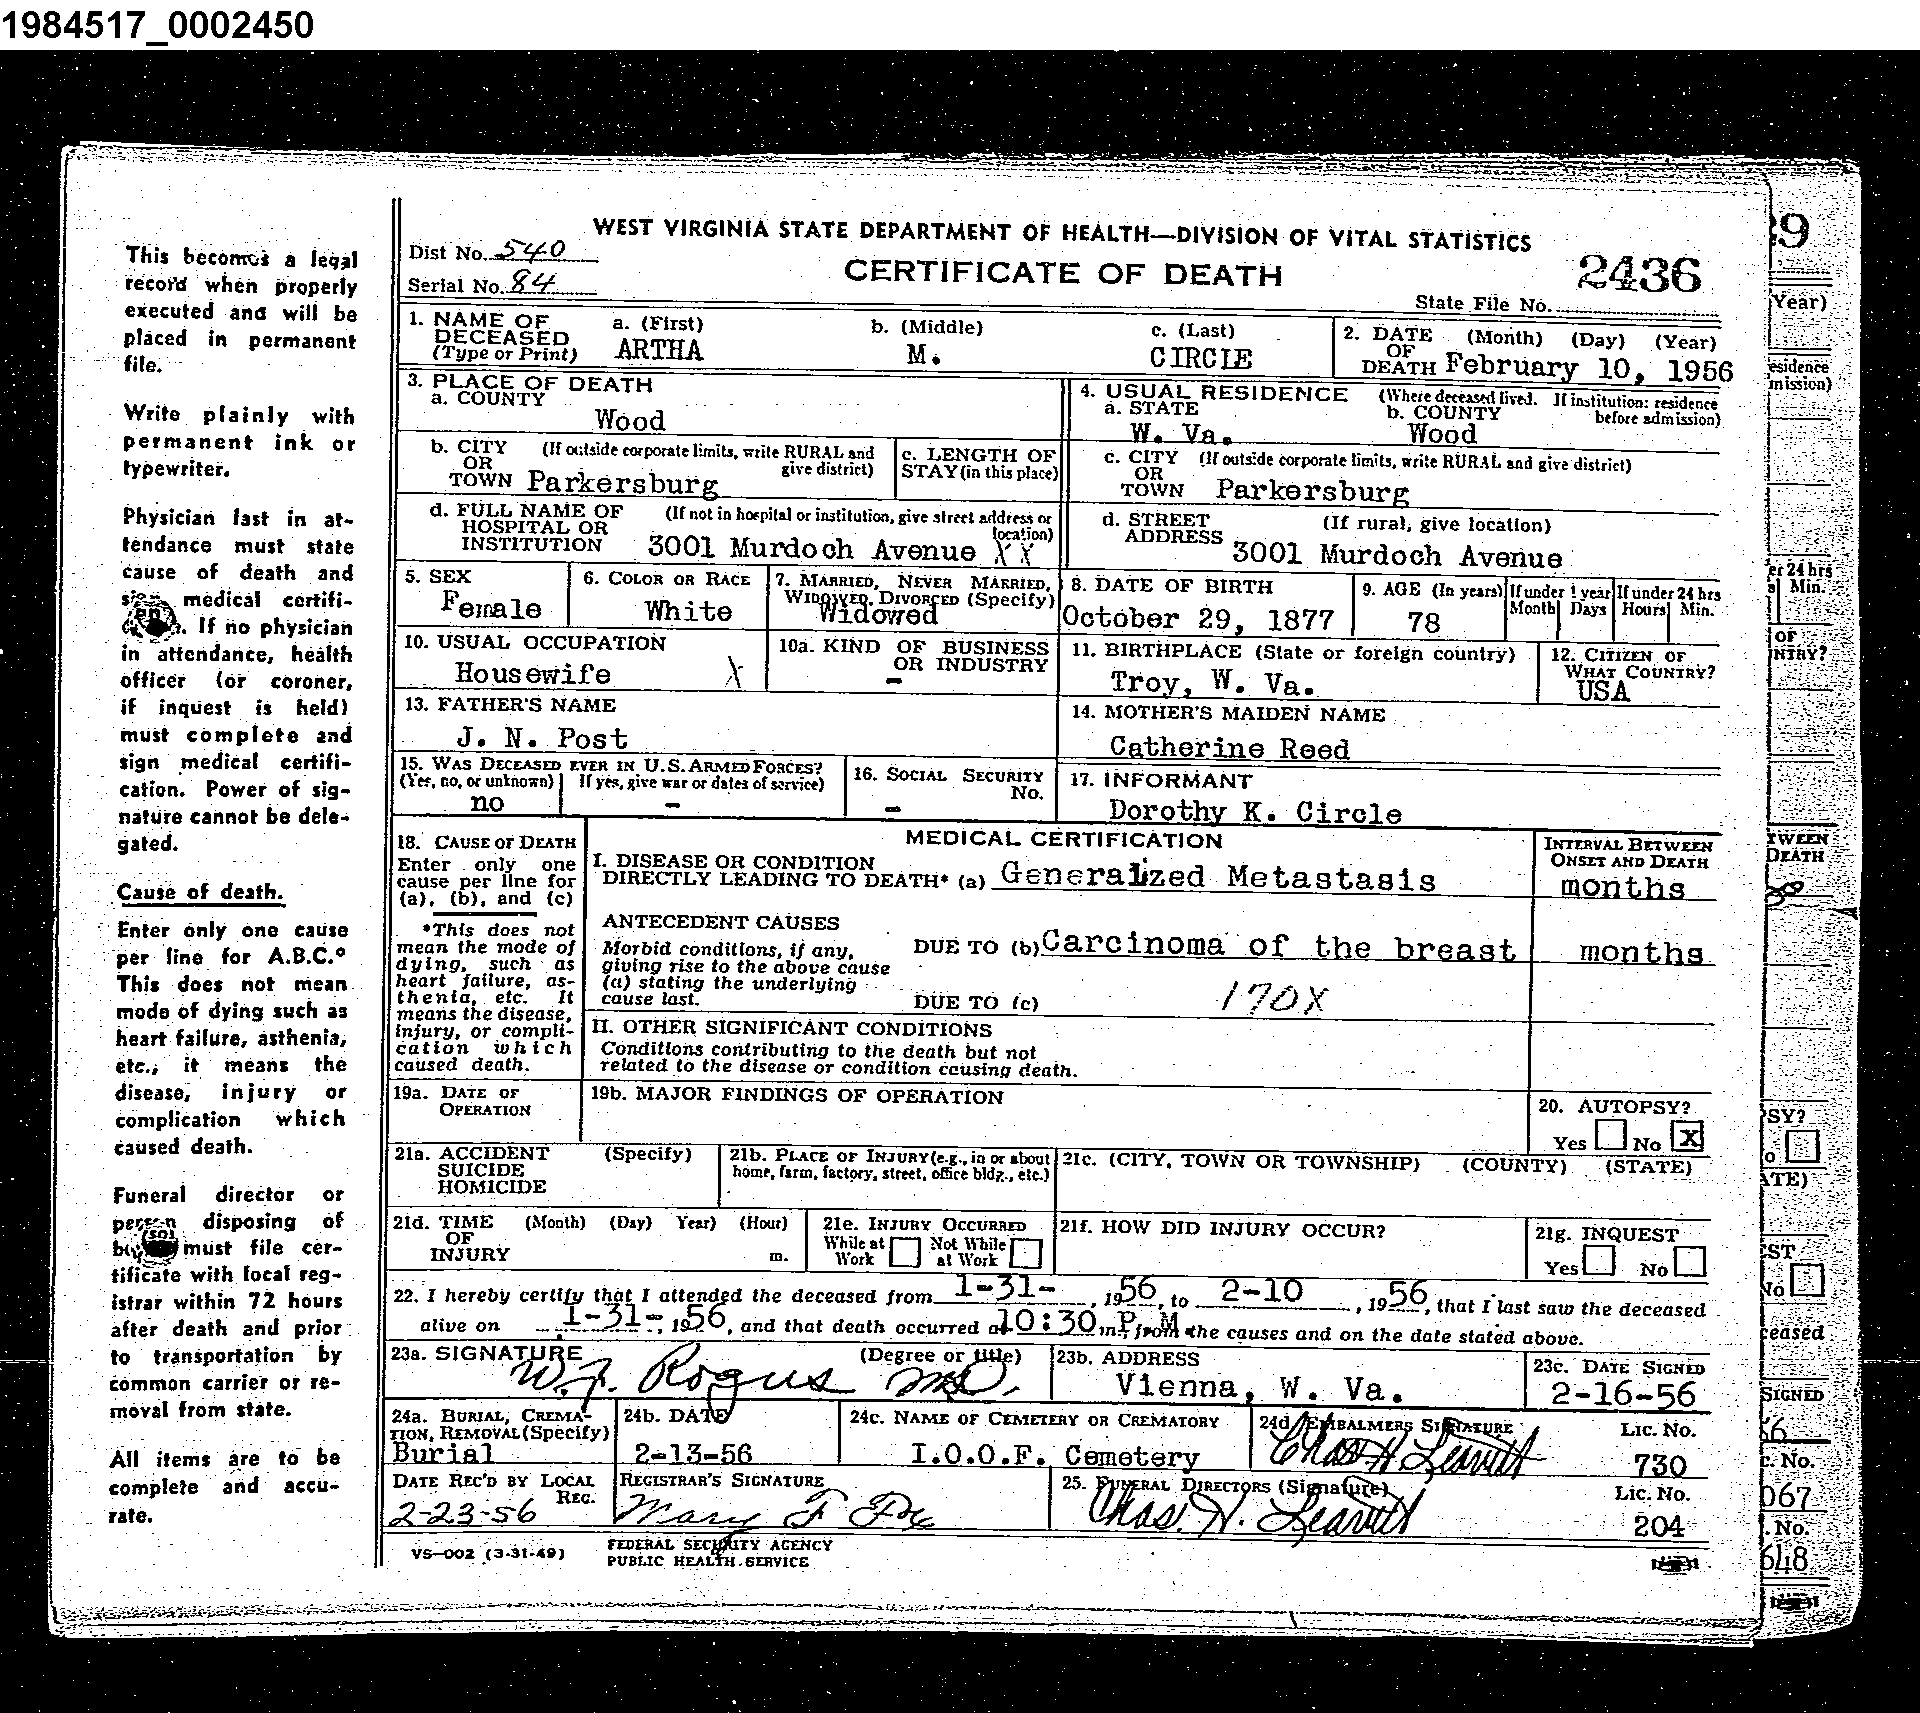 1984517_0002450
This becomes a legal
record when properly
executed and will be
placed in permanent
file.
Write plainly with
permanent ink or
typewriter.
Physician last in at-
tendance must state
cause of death and
sign medical certifi-
. If no physician
in attendance, health
officer (or coroner,
if inquest is held)
must complete and
sign medical certifi-
cation. Power of sig-
nature cannot be dele-
gated.
Cause of death.
Enter only one cause
per line for A.B.C.°
This does not mean
mode of dying such as
heart failure, asthenia,
etc., it means the
disease, injury or
complication which
caused death.
Funeral director or
person disposing of
must file cer-
tificate with local reg-
istrar within 72 hours
after death and prior
to transportation by
common carrier or re-
moval from state.
All items are to be
complete and accu-
rate.
WEST VIRGINIA STATE DEPARTMENT OF HEALTH—DIVISION OF VITAL STATISTICS
Dist No. 540
CERTIFICATE OF DEATH
2436
Serial No. 84
State File No.
1. NAME OF DECEASED (Type or Print)
a. (First) ARTHA
b. (Middle) M.
c. (Last) CIRCIE
2. DATE OF DEATH (Month) (Day) (Year)
February 10, 1956
3. PLACE OF DEATH
a. COUNTY
Wood
4. USUAL RESIDENCE (Where deceased lived. If institution: residence before admission)
a. STATE W. Va.
b. COUNTY Wood
b. CITY OR TOWN (If outside corporate limits, write RURAL and give district)
Parkersburg
c. LENGTH OF STAY (in this place)
c. CITY OR TOWN (If outside corporate limits, write RURAL and give district)
Parkersburg
d. FULL NAME OF HOSPITAL OR INSTITUTION (If not in hospital or institution, give street address or location)
3001 Murdoch Avenue XX
d. STREET ADDRESS (If rural, give location)
3001 Murdoch Avenue
5. SEX
Female
6. COLOR OR RACE
White
7. MARRIED, NEVER MARRIED, WIDOWED, DIVORCED (Specify)
Widowed
8. DATE OF BIRTH
October 29, 1877
9. AGE (In years)
78
If under 1 year Month Days
If under 24 hrs Hours Min.
10. USUAL OCCUPATION
Housewife X
10a. KIND OF BUSINESS OR INDUSTRY
-
11. BIRTHPLACE (State or foreign country)
Troy, W. Va.
12. CITIZEN OF WHAT COUNTRY?
USA
13. FATHER'S NAME
J. N. Post
14. MOTHER'S MAIDEN NAME
Catherine Reed
15. WAS DECEASED EVER IN U.S. ARMED FORCES?
(Yes, no, or unknown) If yes, give war or dates of service)
no -
16. SOCIAL SECURITY No.
-
17. INFORMANT
Dorothy K. Circle
18. CAUSE OF DEATH
Enter only one
cause per line for
(a), (b), and (c)
*This does not
mean the mode of
dying, such as
heart failure, as-
thenia, etc. It
means the disease,
injury, or compli-
cation which
caused death.
MEDICAL CERTIFICATION
INTERVAL BETWEEN ONSET AND DEATH
I. DISEASE OR CONDITION
DIRECTLY LEADING TO DEATH* (a) Generalized Metastasis months
ANTECEDENT CAUSES
Morbid conditions, if any,
giving rise to the above cause
(a) stating the underlying
cause last.
DUE TO (b) Carcinoma of the breast months
DUE TO (c) 170X
II. OTHER SIGNIFICANT CONDITIONS
Conditions contributing to the death but not
related to the disease or condition causing death.
19a. DATE OF OPERATION
19b. MAJOR FINDINGS OF OPERATION
20. AUTOPSY?
Yes No X
21a. ACCIDENT SUICIDE HOMICIDE (Specify)
21b. PLACE OF INJURY (e.g., in or about home, farm, factory, street, office bldg., etc.)
21c. (CITY, TOWN OR TOWNSHIP) (COUNTY) (STATE)
21d. TIME OF INJURY (Month) (Day) Year) (Hour) m.
21e. INJURY OCCURRED
While at Work Not While at Work
21f. HOW DID INJURY OCCUR?
21g. INQUEST
Yes No
22. I hereby certify that I attended the deceased from 1-31-, 1956, to 2-10, 1956, that I last saw the deceased
alive on 1-31-, 1956, and that death occurred at 10:30 P.M. m., from the causes and on the date stated above.
23a. SIGNATURE (Degree or title)
W. J. Rogus MD.
23b. ADDRESS
Vienna, W. Va.
23c. DATE SIGNED
2-16-56
24a. BURIAL, CREMA-
TION, REMOVAL (Specify)
Burial
24b. DATE
2-13-56
24c. NAME OF CEMETERY OR CREMATORY
I.O.O.F. Cemetery
24d. EMBALMERS SIGNATURE
Chas H Leavitt
Lic. No.
730
DATE REC'D BY LOCAL REG.
2-23-56
REGISTRAR'S SIGNATURE
Mary F
25. FUNERAL DIRECTORS (Signature)
Chas. H. Leavitt
Lic. No.
204
VS-002 (3-31-49)
FEDERAL SECURITY AGENCY
PUBLIC HEALTH SERVICE